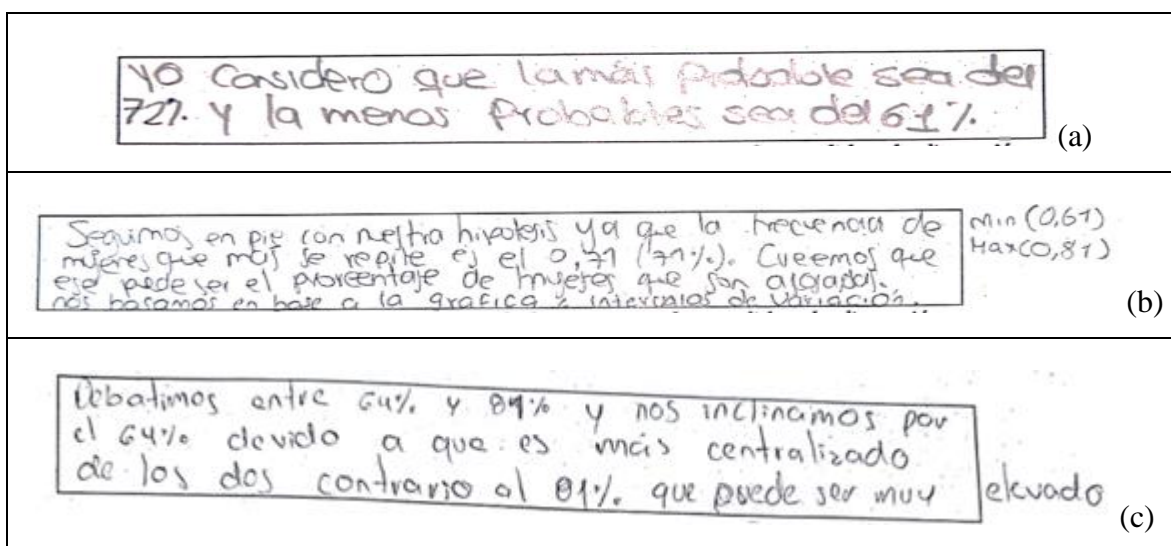 Yo considero que la más probable sea del
72% y la menos probables sea del 61%.
(a)
Seguimos en pie con nuestra hipotesis ya que la frecuencia de
mujeres que más se repite es el 0,71 (71%). Creemos que
ese puede ser el porcentaje de mujeres que son
nos basamos en base a la grafica e intervalos de variación.
Min (0,61)
Max (0,81)
(b)
Debatimos entre 64% y 81% y nos inclinamos por
el 64% devido a que es más centralizado
de los dos contrario al 81%. que puede ser muy elevado
(c)